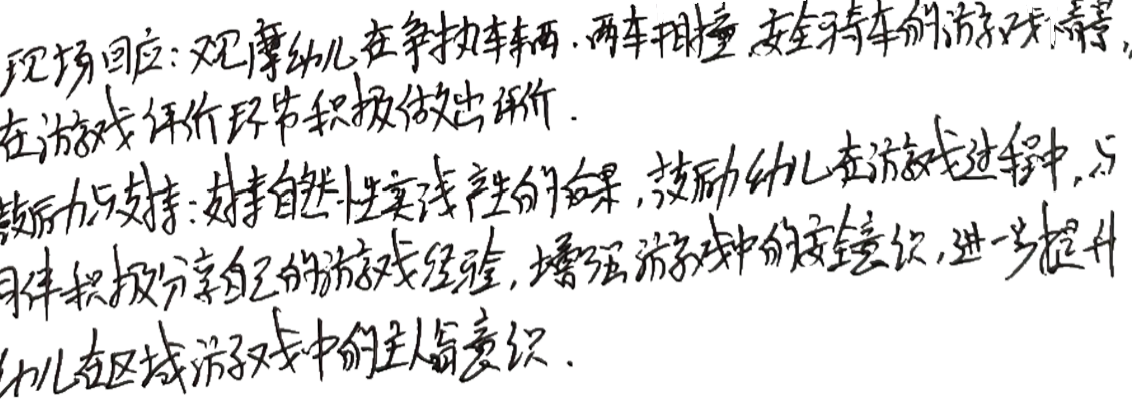 现场回应：观摩幼儿在争执车辆.两车相撞.安全骑车的游戏情景，
在游戏评价环节积极做出评价.
鼓励与支持：支持自然性实践产生的后果，鼓励幼儿在游戏过程中，与
同伴积极分享自己的游戏经验，增强游戏中的安全意识，进一步提升
幼儿在区域游戏中的主人翁意识.